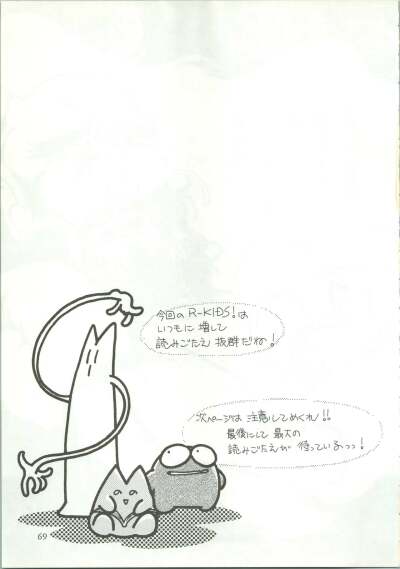 今回の R-KIDS!は
いつもに 増して
読みごたえ 抜群だね!
次ページは 注意してめくれ!!
最後にして 最大の
読みごたえが 待っているっっ!
69